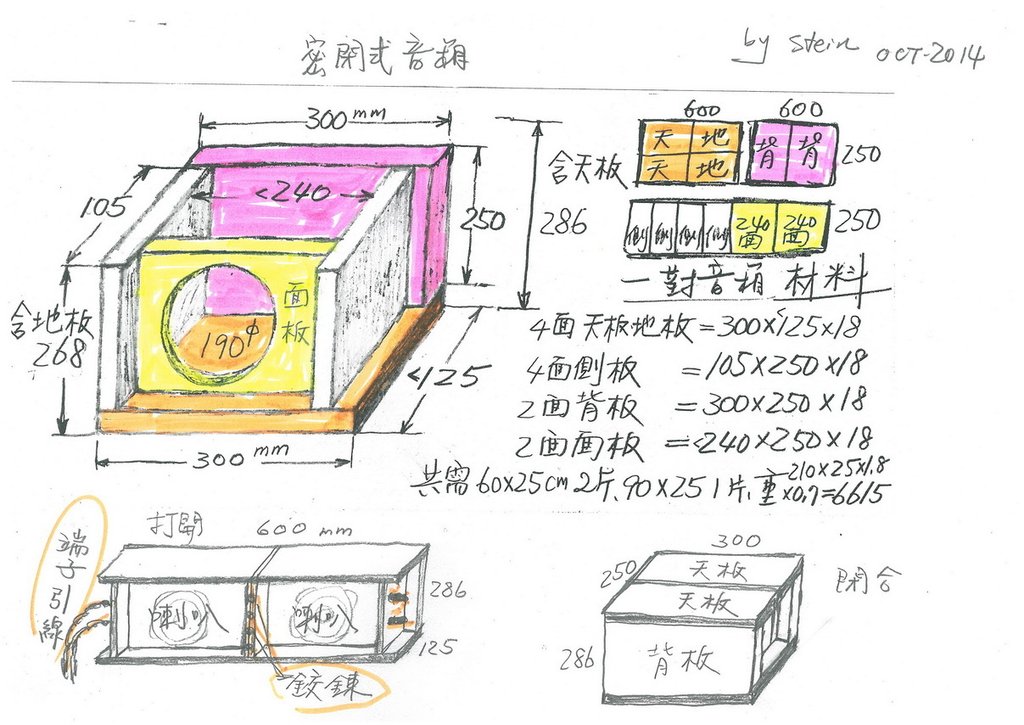 密閉式音箱
by Stein OCT-2014
300 mm
105
<240
250
286
含地板
268
面板
190φ
<125
300 mm
含天板
600
600
天 地
天 地
背 背
250
側 側 側 側 240面 240面
250
一對音箱 材料
4面天板地板=300×125×18
4面側板 =105×250×18
2面背板 =300×250×18
2面面板 =240×250×18
共需60×25cm 2片、90×25 1片、重 210×25×1.8 ×0.7=6615
打開
600 mm
端子引線
喇叭 喇叭
286
125
鉸鍊
300
250
天板
天板
閉合
286
背板